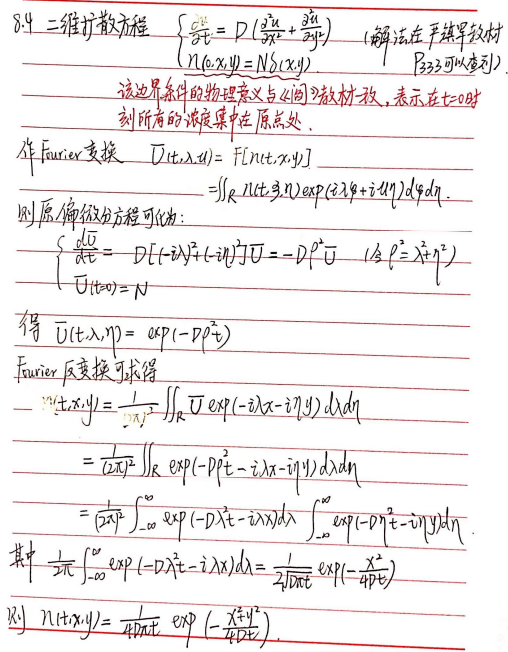 8.4 二维扩散方程 { ∂u/∂t = D(∂²u/∂x² + ∂²u/∂y²) (解法在严镇军教材
n(0,x,y)=Nδ(x,y). P333可以查到).
该边界条件的物理意义与《问》教材一致,表示在t=0时
刻所有的浓度集中在原点处.
作Fourier变换 Ū(t,λ,u)= F[n(t,x,y)]
=∬_R n(t,ξ,η)exp(iλφ+iuη)dφdη.
则原偏微分方程可化为:
{ dŪ/dt = D[(-iλ)²+(-iη)²]Ū = -Dρ²Ū (令ρ²=λ²+η²)
Ū(t=0)=N
得 Ū(t,λ,η)= exp(-Dρ²t)
Fourier反变换可求得
n(t,x,y)= 1/(2π)² ∬_R Ū exp(-iλx-iηy)dλdη
= 1/(2π)² ∬_R exp(-Dρ²t-iλx-iηy)dλdη
= 1/(2π)² ∫_{-∞}^{∞} exp(-Dλ²t-iλx)dλ ∫_{-∞}^{∞} exp(-Dη²t-iηy)dη.
其中 1/2π ∫_{-∞}^{∞} exp(-Dλ²t-iλx)dλ = 1/(2√(Dπt)) exp(-x²/4Dt)
则 n(t,x,y)= 1/(4Dπt) exp(-(x²+y²)/4Dt).